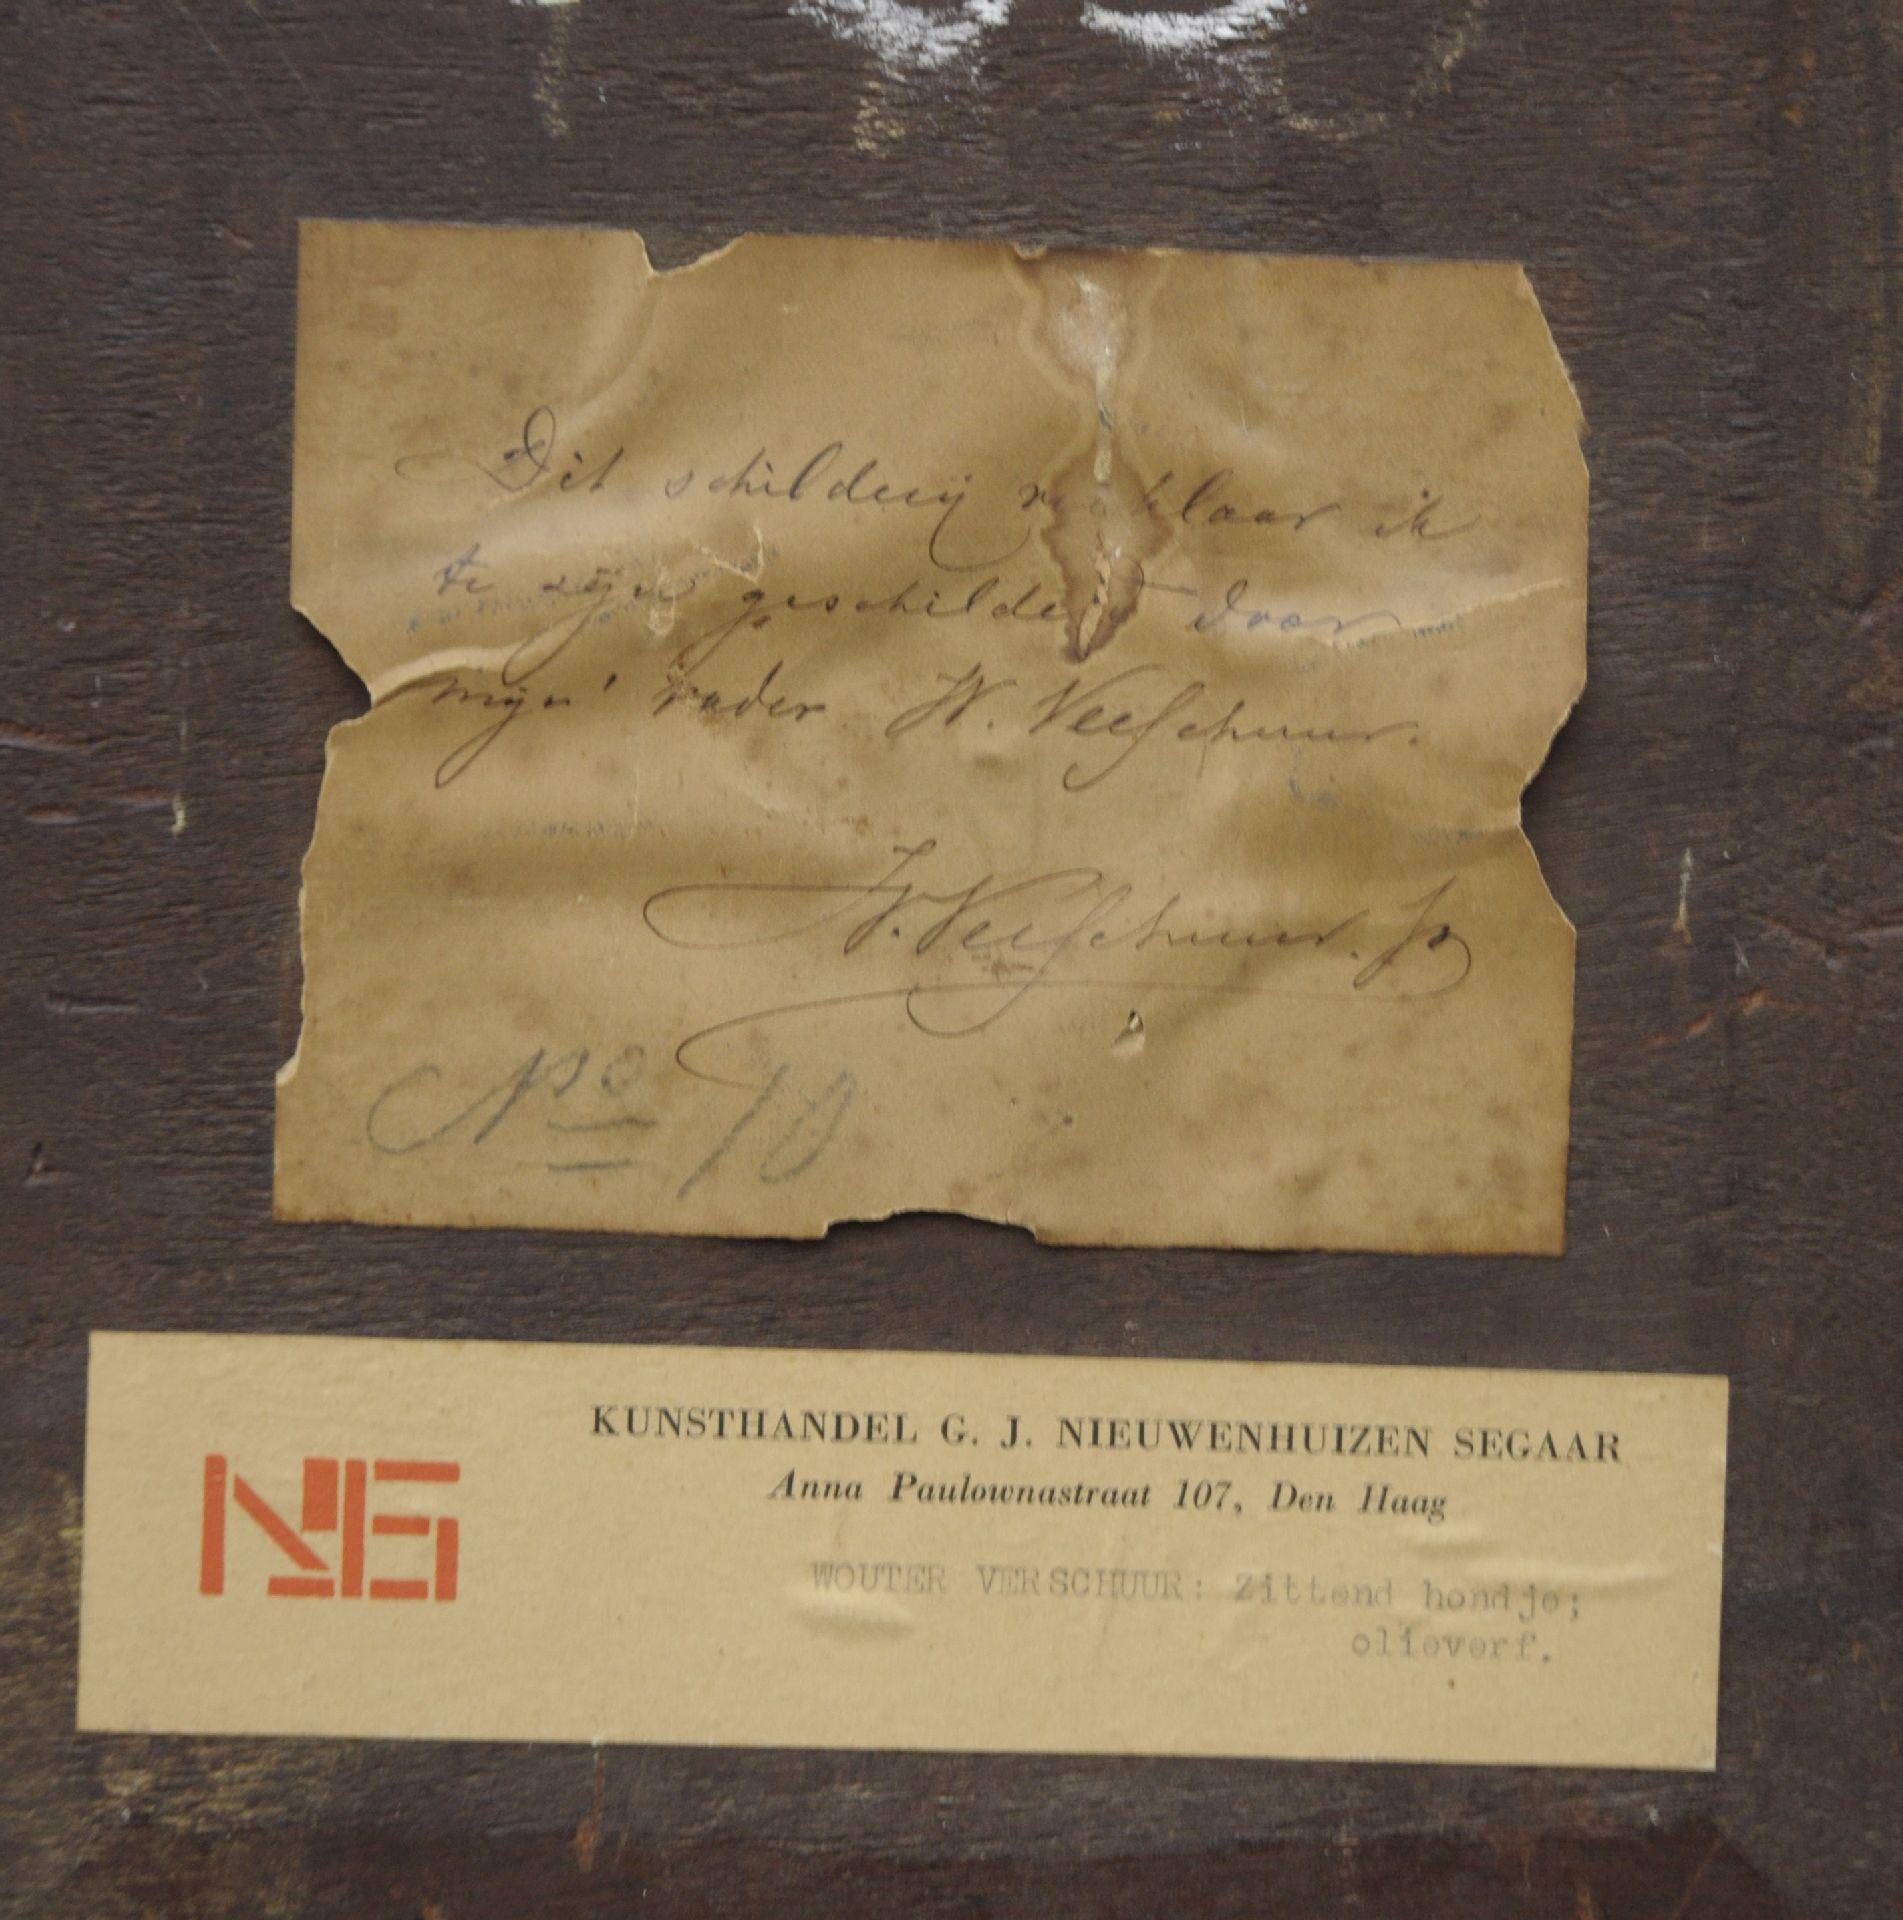 Dit schilderij verklaar ik
te zijn geschilderd door
mijn' vader W. Verschuur.
W. Verschuur. Jr
No 10
KUNSTHANDEL G. J. NIEUWENHUIZEN SEGAAR
Anna Paulownastraat 107, Den Haag
NS
WOUTER VERSCHUUR: Zittend hondje;
olieverf.